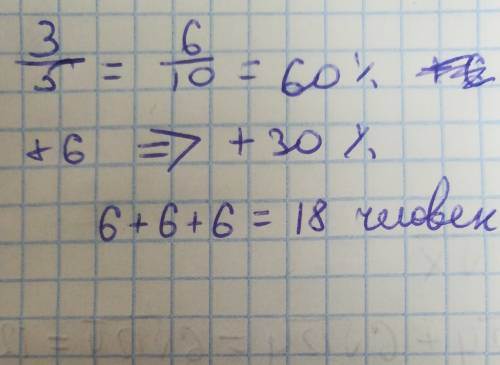 3/5 = 6/10 = 60%
+6 => +30%
6+6+6 = 18 человек